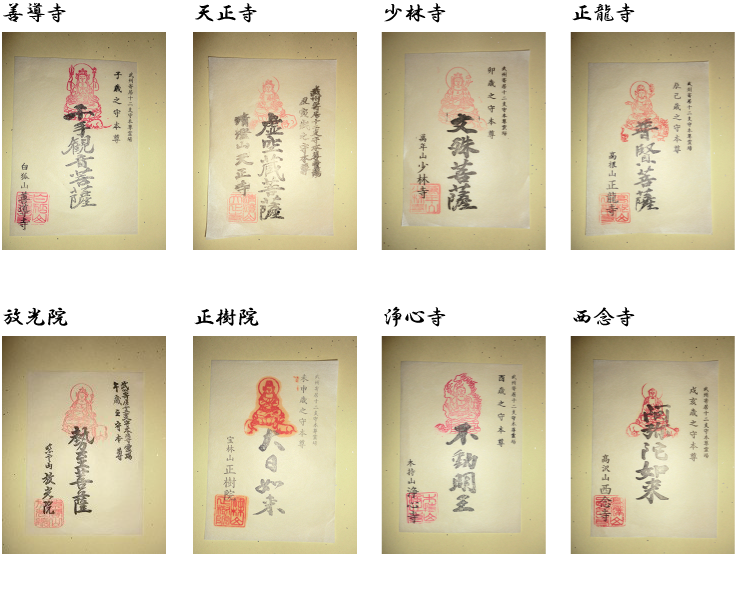 善導寺
武州寄居十二支守本尊霊場
子歳之守本尊
千手観音菩薩
白狐山 善導寺
天正寺
武州寄居十二支守本尊霊場
丑寅歳之守本尊
虚空蔵菩薩
天正寺
少林寺
武州寄居十二支守本尊霊場
卯歳之守本尊
文殊菩薩
萬年山 少林寺
正龍寺
武州寄居十二支守本尊霊場
辰巳歳之守本尊
普賢菩薩
高根山 正龍寺
放光院
武州寄居十二支守本尊霊場
午歳之守本尊
勢至菩薩
放光院
正樹院
武州寄居十二支守本尊霊場
未申歳之守本尊
大日如来
宝林山 正樹院
浄心寺
武州寄居十二支守本尊霊場
酉歳之守本尊
不動明王
木持山 浄心寺
西念寺
武州寄居十二支守本尊霊場
戌亥歳之守本尊
阿弥陀如来
高沢山 西念寺